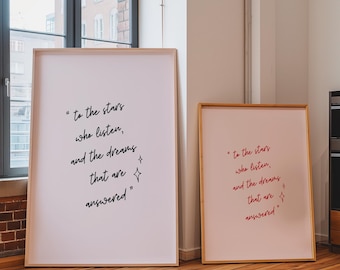 “ to the stars
who listen,
and the dreams
that are
answered ”
“ to the stars
who listen,
and the dreams
that are
answered ”